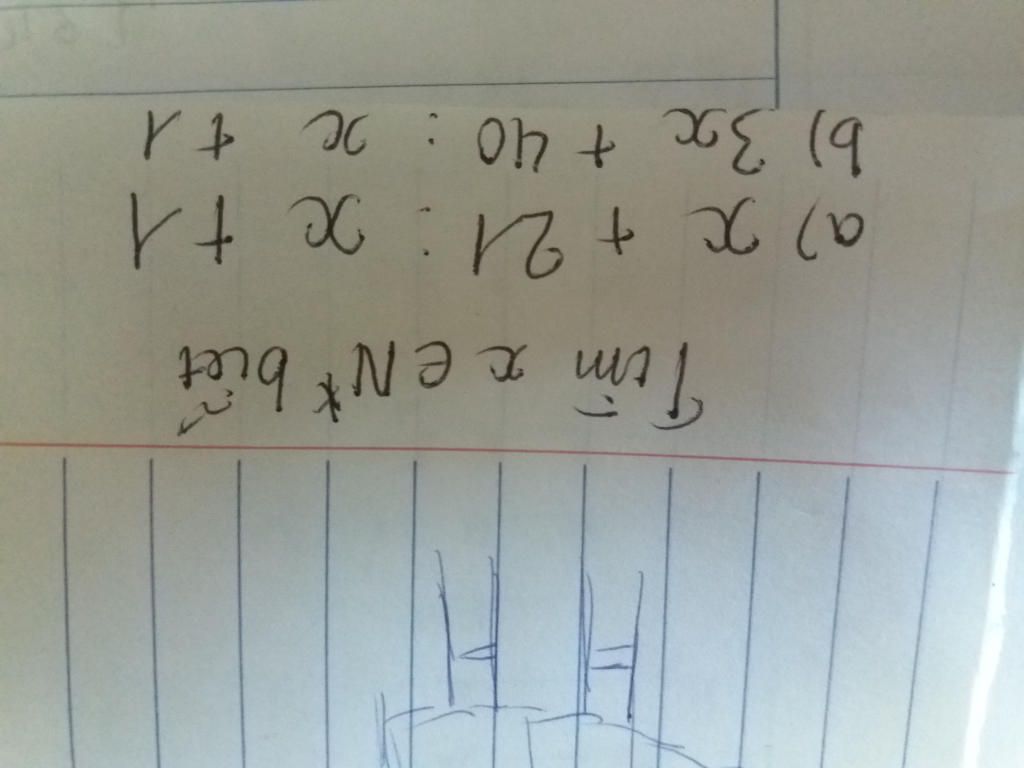 Tìm x ∈ N* biết
a) x + 21 : x + 1
b) 3x + 40 : x + 1